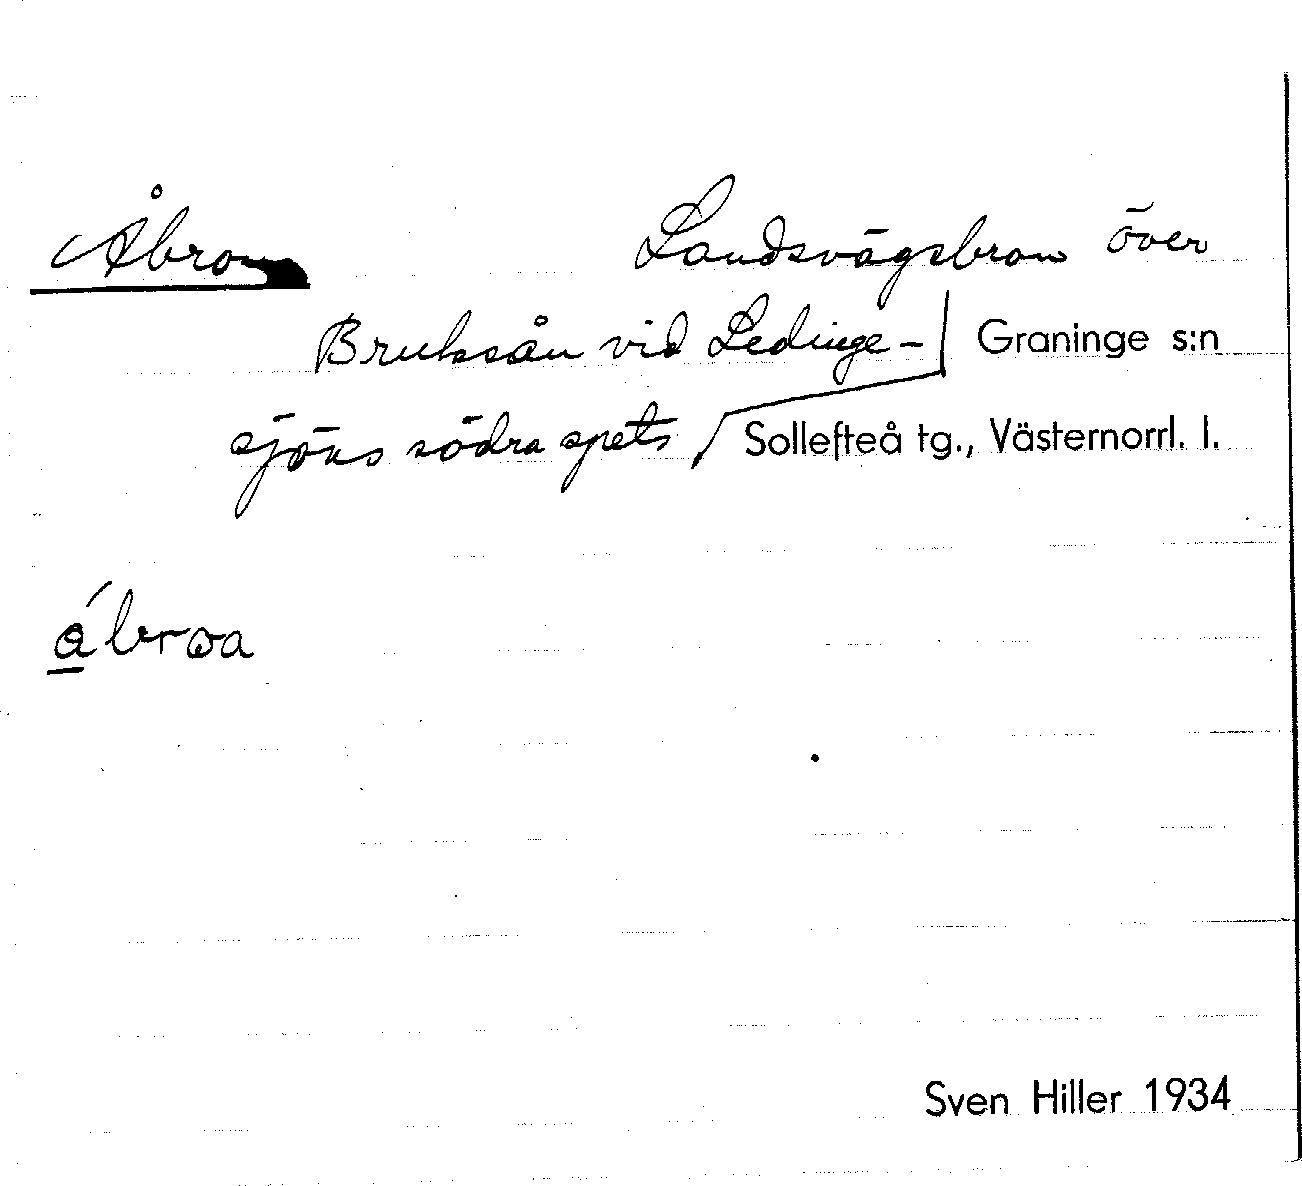 Åbron Landsvägsbron över
Bruksån vid Ledinge- Graninge s:n
sjöns södra spets Sollefteå tg., Västernorrl. l.
åbroa
Sven Hiller 1934